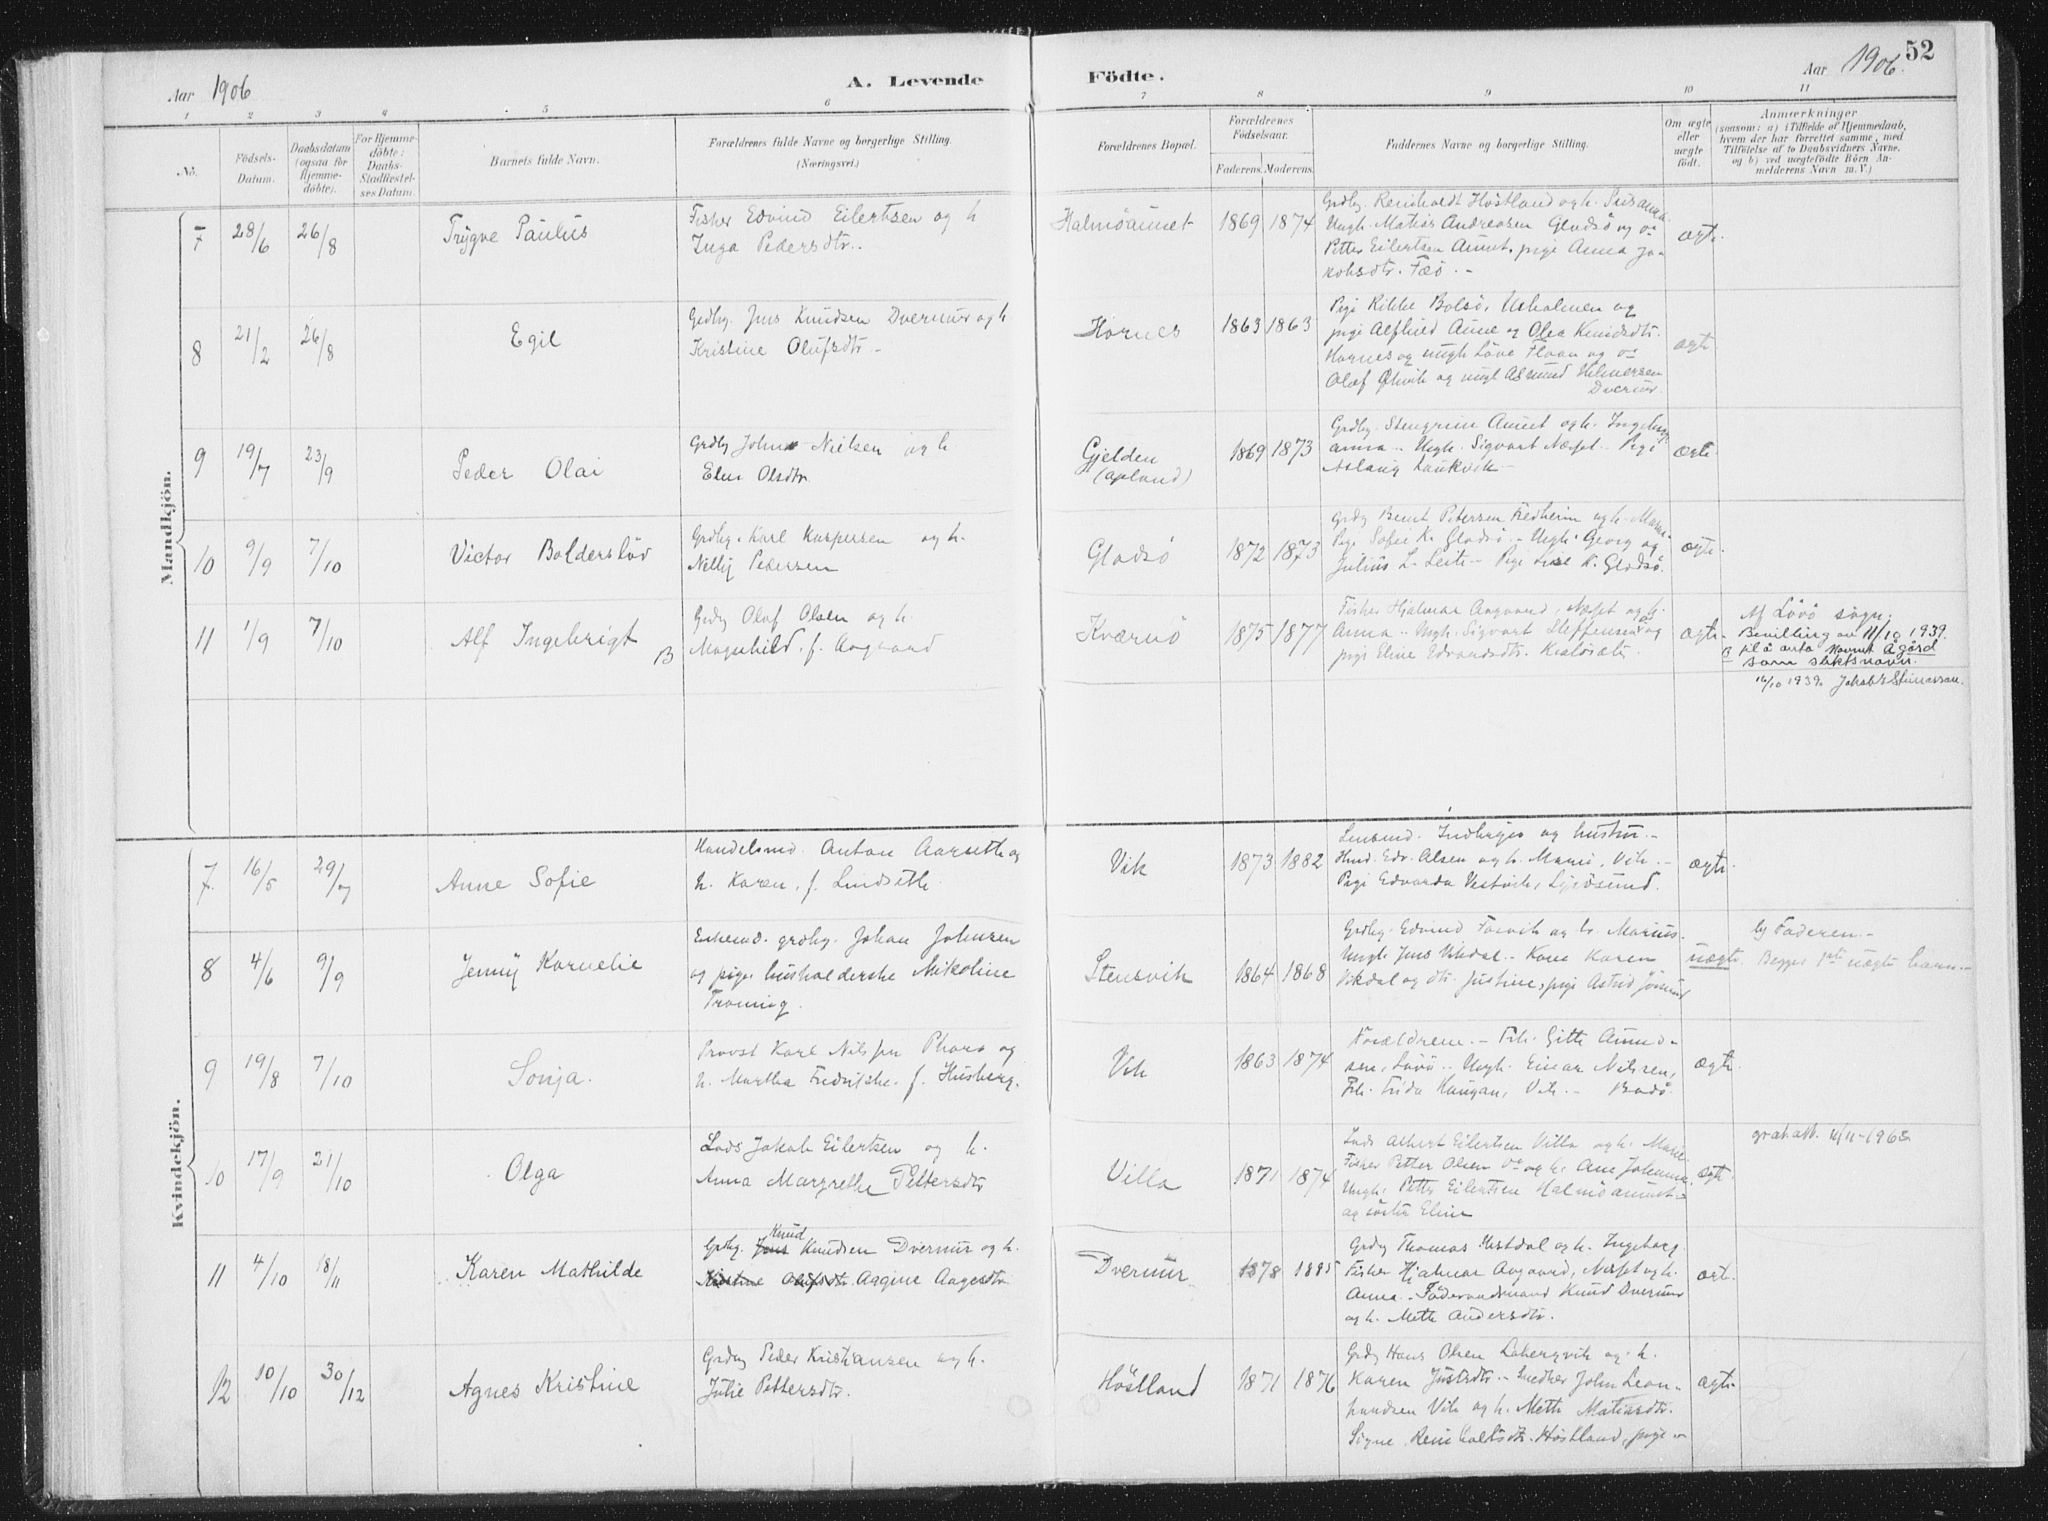 52
Aar 1906
A. Levende
Födte.
Aar 1906.
1 2 3 4 5 6 7 8 9 10 11
No.
Födsels-
Datum.
Daabsdatum
(ogsaa for
Hjemme-
döbte).
For Hjemme-
döbte:
Daabs-
Stadfæstel-
ses Datum.
Barnets fulde Navn.
Forældrenes fulde Navne og borgerlige Stilling.
(Næringsvei.)
Forældrenes Bopæl.
Forældrenes
Födselsaar.
Faderens. Moderens.
Faddernes Navne og borgerlige Stilling.
Om ægte
eller
uægte
födt.
Anmærkninger
(saasom: a) i Tilfælde af Hjemmedaab,
hvem der har forrettet samme, med
Tilföielse af to Daabsvidners Navne.
og b) ved uægtefödte Börn An-
melderens Navn m. V.)
Mandkjön.
7 28/6 26/8
Trygve Paulus
Fisher Edvind Eilertsen og h
Inga Pedersdtr..
Halmöaunet
1869 1874
Grdbg. Reinholdt Höstland og h. Susanna.
Ungk. Matias Andreasen Gladsö og do
Petter Eilertsen Aunet, pige Anna Ja-
kobsdtr. Fæö.-
ægte.
8 21/2 26/8
Egil
Grdbg. Jens Knudsen Dvernur og h
Kristine Olufsdtr-
Hornes
1863 1863
Pige Rikke Bolsö, Usholmen og
pige Alfhild Aune og Olea Knudsdtr.
Hornes og ungk Flaan og do
Olaf og ungk Asmund Hilmersen
Dvernur.
ægte
9 19/7 23/9
Peder Olai
Grdbg Johan Nielsen og h
Elen Olsdtr.
Gjelden
(Opland)
1869 1873
Grdbg. Stengrim Aunet og h. Ingeborg-
anna.. Ungk. Sigvart Næset.. Pige
Aslaug Laukvik-
ægte
10 9/9 7/10
Victor Balderslöv
Grdbg. Karl Kaspersen og h.
Nelly Pedersen
Gladsö
1872 1873
Grdbg Bernt Petersen Fredheim og h. Marie
Pige Sofie K. Gladsö.. Ungk. Georg og
Julius L. Leite- Pige K. Gladsö.
ægte
11 1/9 7/10
Alf Ingebrigt B
Grdbg Olaf Olsen og h.
Magnhild, f. Aagaard
Kværnö
1875 1877
Fisher Hjalmar Aagaard, Næset og h.
Anna.. Ungk. Sigvart Steffensen og
pige Eline Edvardsdtr.
ægte.
Af Lövö sogn;
Bevilling av 11/10 1939.
B til å anta navnet Ågård
som slektsnavn.
16/10 1939. Jakob
Kvindekjön.
7 16/5 29/7
Anne Sofie
Handelsmd. Anton Aarseth og
h. Karen, f. Lindseth.
Vik
1873 1882
Lensmd. Indbergö og hustru.-
Hmd. Edv. Olsen og h. Marie, Vik.-
Pige Edvarda Vestvik,
ægte.
8 4/6 9/9
Jenny Kornelie
Enkemd. grdbg. Johan Johnsen
og pige husholderske Nikoline
Stensvik
1864 1868
Grdbg. Edvind Forvik og h. Marius.
Ungk Jens Vikdal.. Kona Karen
Vikdal og dtr. Justine, pige Astrid
uægte.
by Faderen.-
Begges 1ste uægte barn.-
9 19/8 7/10
Sonja.
Provst Karl Nilssen Pharo og
h. Martha Fredrikke. f. Husberg.
Vik
1863 1874
Forældrene.- Frk. Gitte Amund-
sen, Lövö.. Ungk. Einar Nilssen,
Frk. Frida Haugan, Vik.- Bodö.
ægte.
10 17/9 21/10
Olga
Lods Jakob Eilertsen og h.
Anna Margrethe Pettersdtr
Villa
1871 1874
Lods Albert Eilertsen Villa og h. Marie
Fisher Petter Olsen do og h. Ane Johanna.
Ungk. Petter Eilertsen Halmöaunet
og söster Eline
ægte.
grat.att. 12/11-1963.
11 4/10 18/11
Karen Mathilde
Knud
Grdbg. Jens Knudsen Dvernur og h.
Kristine Olufsdtr Aagine Aagesdtr
Dvernur
1878 1885
Grdbg Thomas Vestdal og h. Ingeborg.
Fisher Hjalmar Aagaard, Næset og h.
Anna.. Föderaadsmand Knud Dvernur
og h. Meth Andersdtr.
ægte.
12 10/10 30/12
Agnes Kristine
Grdbg Peder Kristiansen og h.
Julie Pettersdtr.
Höstland
1871 1876
Grdbg Hans Olsen Labergvik og h.
Karen Justsdtr.. Snedker John Leon-
hardsen Vik og h. Meth Matiasdtr.
Signe Reinholdtsdtr. Höstland, pige -
ægte